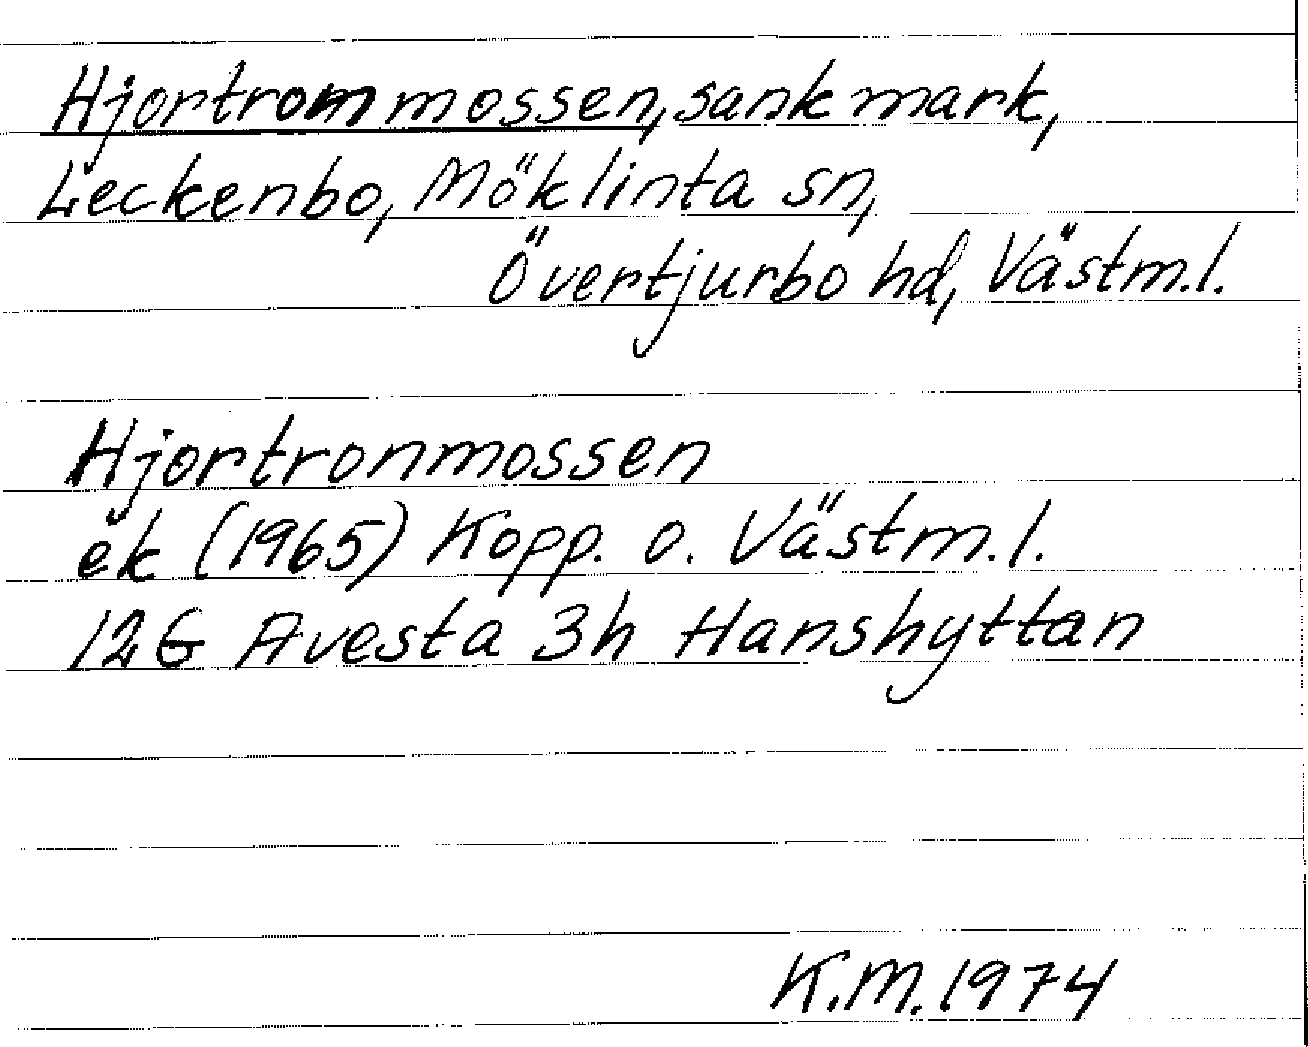 Hjortrommossen, sank mark,
Leckenbo, Möklinta sn,
Övertjurbo hd, Västm.l.
Hjortronmossen
ek (1965) Kopp. o. Västm.l.
12G Avesta 3h Hanshyttan
K.M. 1974